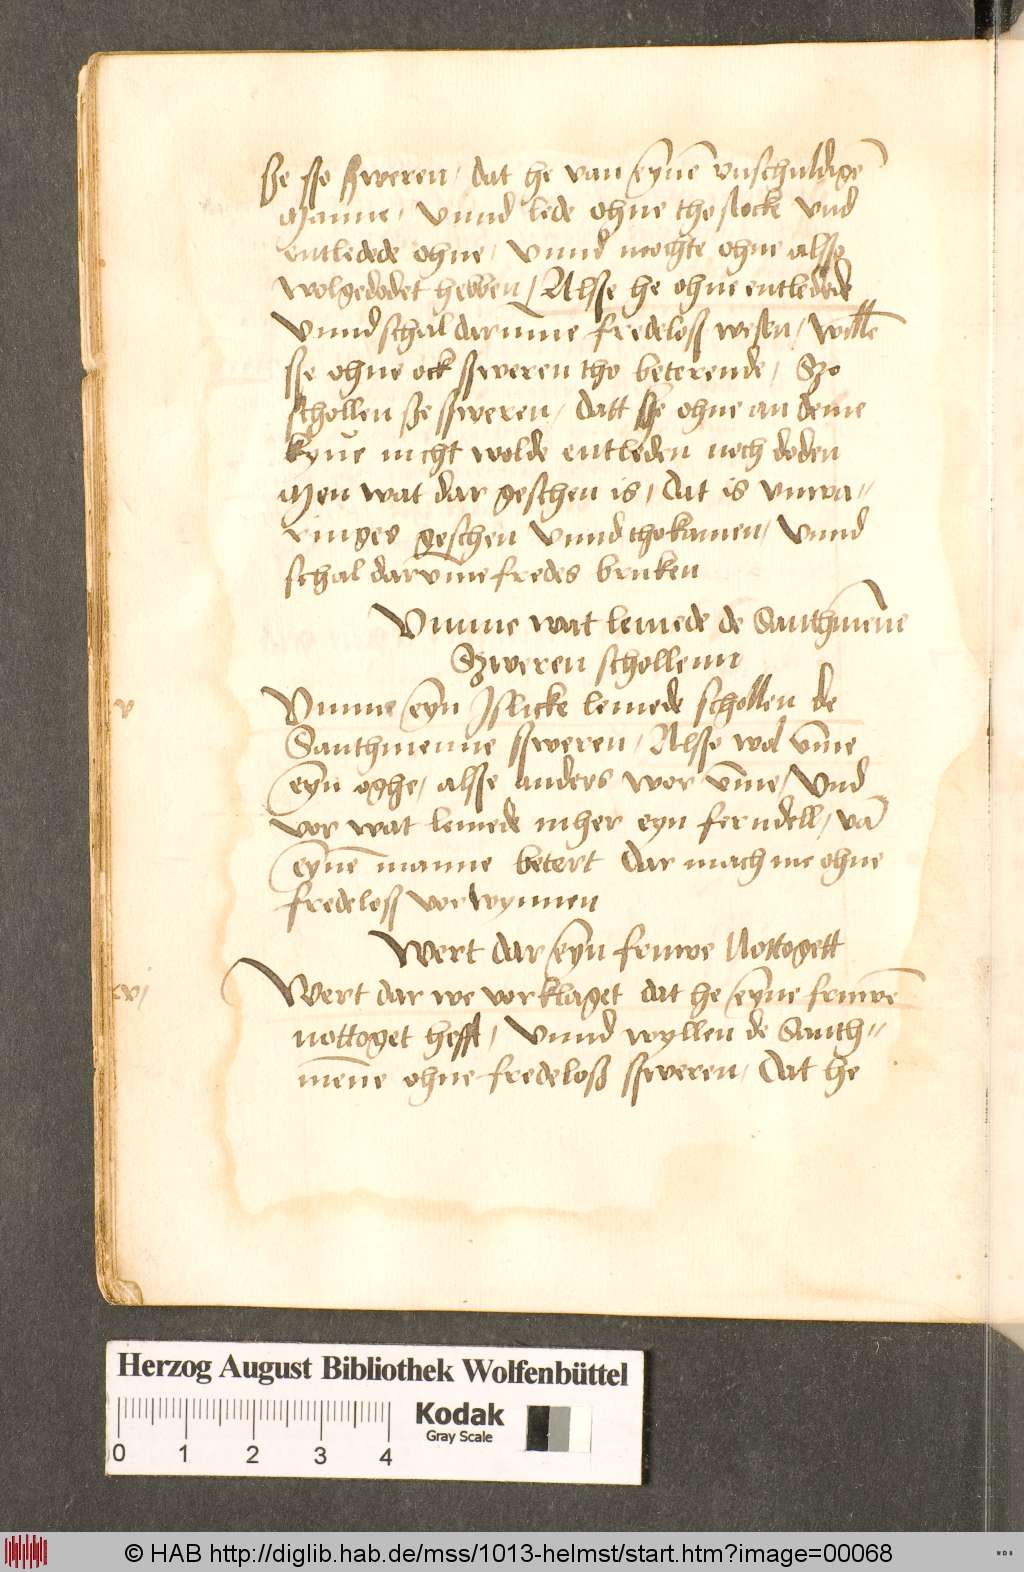 ße sso ßweren / dat he van eynē vnschuldigē
Manne / Vnnd lede ohne tho stocke vnd
entledede ohne / Vnnd mochte ohne alsso
wolgedodet hebben / Alsse he ohne entledede
Vnnd schal darumme fredeloß wesen / willē
sse ohne ock ssweren tho beterende / Szo
schollen ße ssweren / datt ße ohne an deme
kyue nicht wolde entleden noch doden
Men wat dar geschen is / dat is vnwa-
ringes geschen Vnnd thokamen / Vnnd
schal darvme fredes bruken
Vmme wat lemede de Santhmēne
Szweren schollenn
v Vmme eyn Islicke lemede schollen de
Santhmenne ssweren / Alsso wol vme
eyn oghe / alsse anders wor vme / Vnd
vor wat lemede mher eyn ferndell / vā
eynē manne betert dar mach me ohne
fredeloß vorwynnen
Wert dar eyn fruwe Nottogett
xv / Wert dar we vorklaget dat he eyne fruwē
nottoget hefft / Vnnd wyllen de Santh-
mēne ohne fredeloß ssweren / dat he
Herzog August Bibliothek Wolfenbüttel
0 1 2 3 4
Kodak
Gray Scale
© HAB http://diglib.hab.de/mss/1013-helmst/start.htm?image=00068